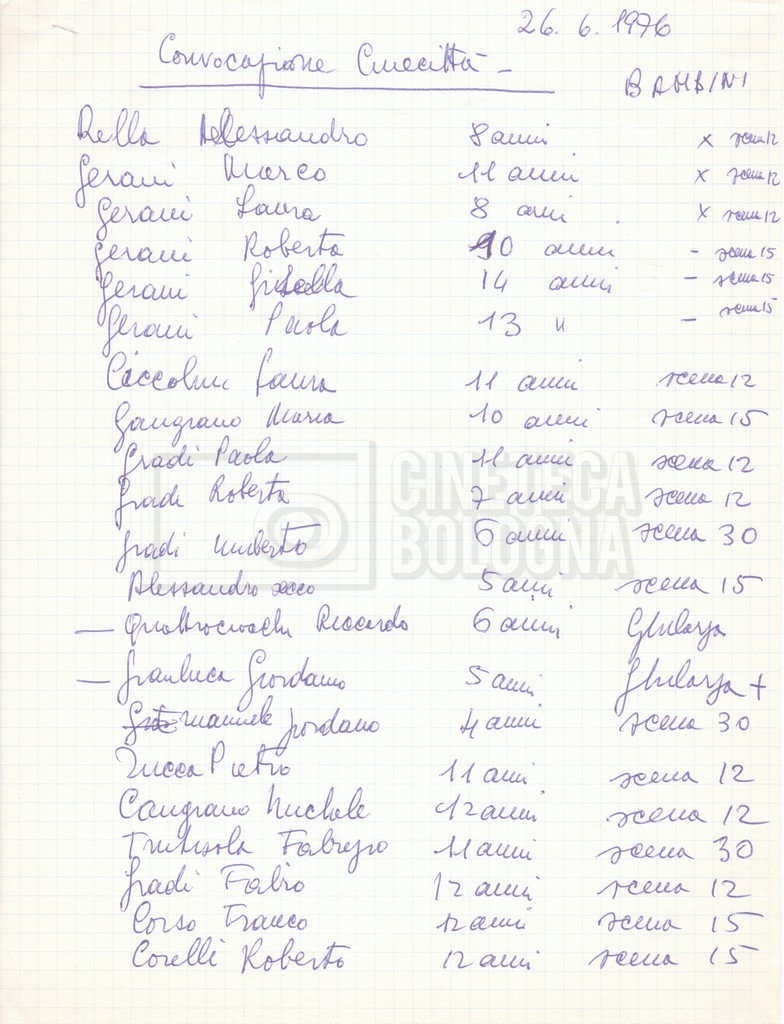 26. 6. 1976
Convocazione Cinecittà -
BAMBINI
Rella Alessandro 8 anni x scena 12
Gerani Marco 11 anni x scena 12
Gerani Laura 8 anni . x scena 12
Gerani Roberto 10 anni - scena 15
Gerani Gisella 14 anni - scena 15
Gerani Paola 13 " - scena 15
Ciccolini Laura 11 anni scena 12
Gangrano Maria 10 anni scena 15
Gradi Paola 11 anni scena 12
Gradi Roberta 7 anni scena 12
Gradi Umberto 6 anni scena 30
CINETECA
BOLOGNA
Alessandro 5 anni scena 15
— Quattrociocchi Riccardo 6 anni Ghilarza
— Gianluca Giordano 5 anni Ghilarza +
Emanuele Giordano 4 anni scena 30
Zucca Pietro 11 anni scena 12
Cangrano Michele 12 anni scena 12
Fabrizio 11 anni scena 30
Gradi Fabio 12 anni scena 12
Corso Franco 12 anni scena 15
Corelli Roberto 12 anni scena 15